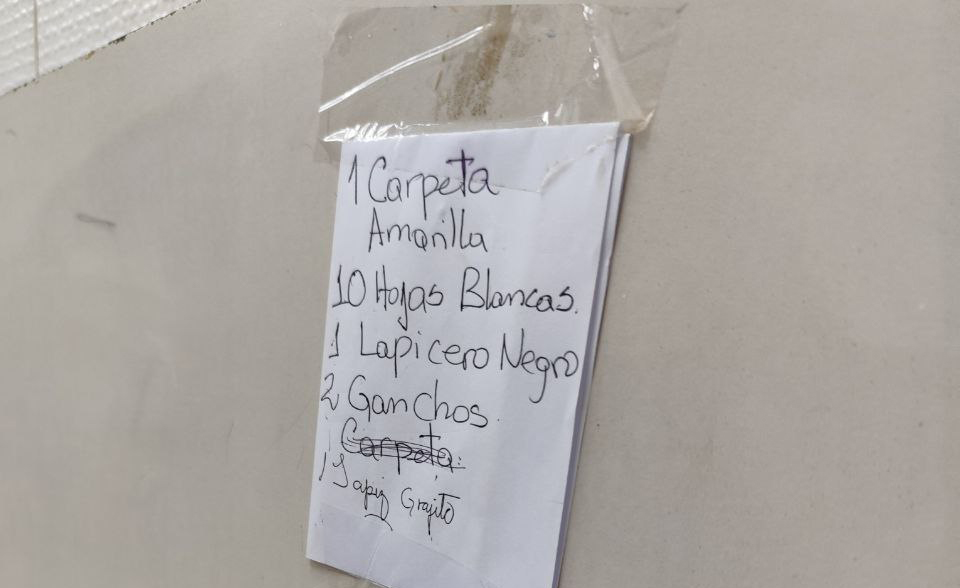 1 Carpeta
Amarilla
10 Hojas Blancas.
1 Lapicero Negro
2 Ganchos.
Carpeta.
1 Lapiz Grafito